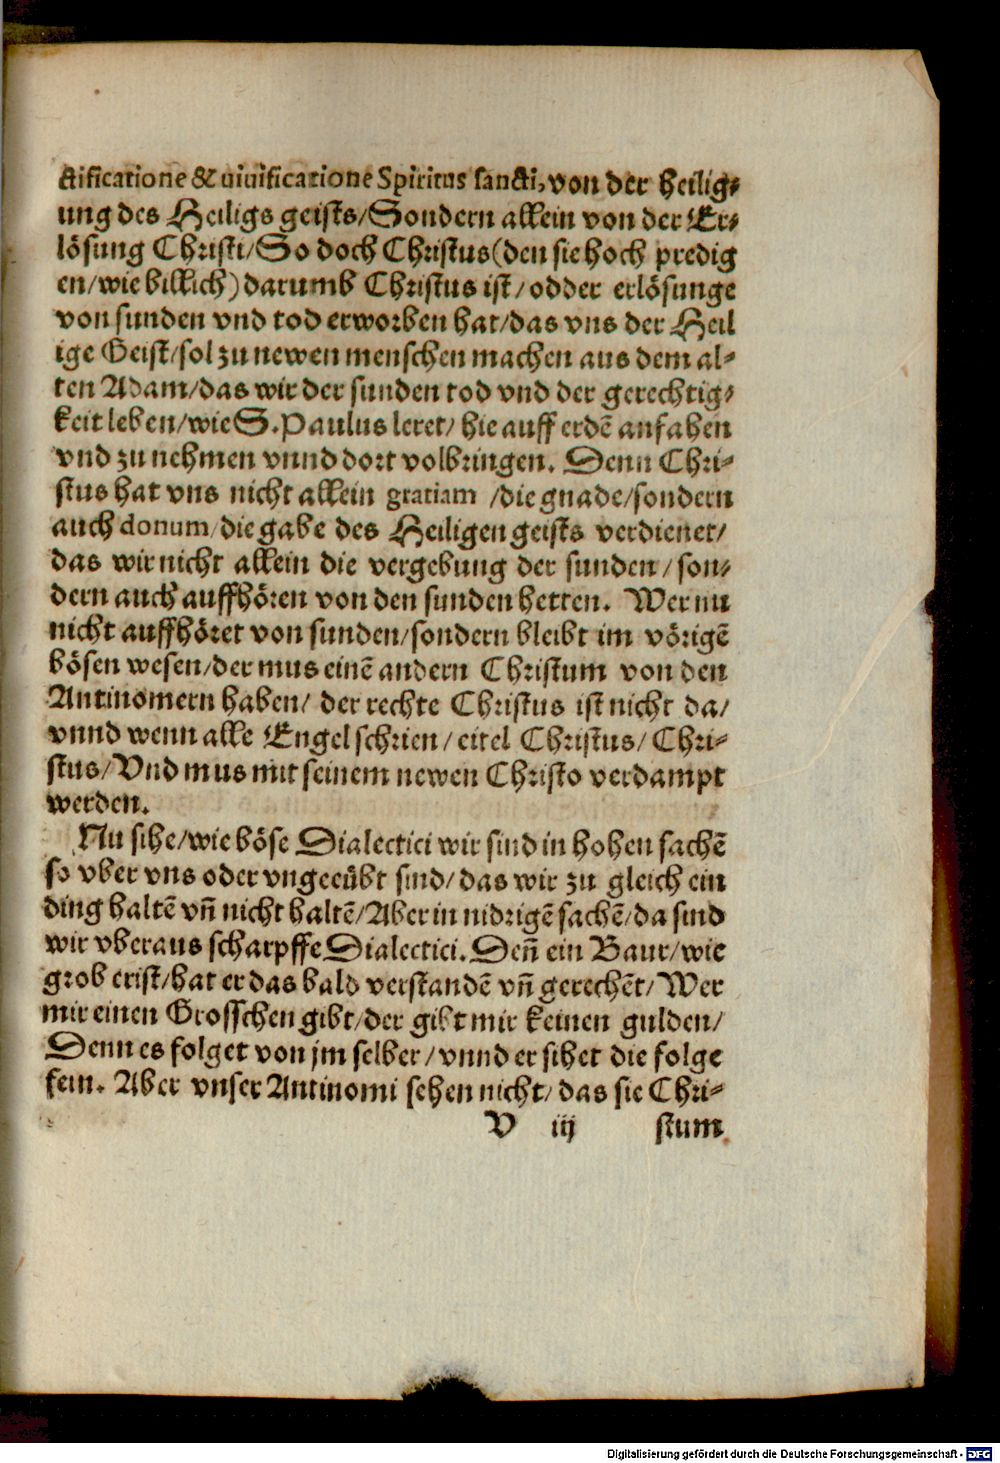 ctificatione & uiuificatione Spiritus sancti, von der heilig⸗
ung des Heiligs geists/Sondern allein von der Er⸗
lösung Christi/So doch Christus(den sie hoch predig
en/wie billich)darumb Christus ist/odder erlösunge
von sunden vnd tod erworben hat/das vns der Heil
ige Geist/sol zu newen menschen machen aus dem al⸗
ten Adam/das wir der sunden tod vnd der gerechtig⸗
keit leben/wie S.Paulus leret/hie auff erdē anfahen
vnd zu nehmen vnnd dort volbringen. Denn Chri⸗
stus hat vns nicht allein gratiam /die gnade/sondern
auch donum/die gabe des Heiligen geists verdienet/
das wir nicht allein die vergebung der sunden/son⸗
dern auch auffhören von den sunden hetten. Wer nu
nicht auffhöret von sunden/sondern bleibt im vörigē
bösen wesen/der mus einē andern Christum von den
Antinomern haben/ der rechte Christus ist nicht da/
vnnd wenn alle Engel schrien/eitel Christus/Chri⸗
stus/Vnd mus mit seinem newen Christo verdampt
werden.
Nu sihe/wie böse Dialectici wir sind in hohen sachē
so vber vns oder vngeeübt sind/das wir zu gleich ein
ding haltē vn̄ nicht haltē/Aber in nidrigē sachē/da sind
wir vberaus scharpffe Dialectici.Den̄ ein Baur/wie
grob erist/hat er das bald verstandē vn̄ gerechēt/Wer
mir einen Grosschen gibt/der gibt mir keinen gulden/
Denn es folget von jm selber/vnnd er sihet die folge
fein. Aber vnser Antinomi sehen nicht/das sie Chri⸗
V iij stum
Digitalisierung gefördert durch die Deutsche Forschungsgemeinschaft - DFG